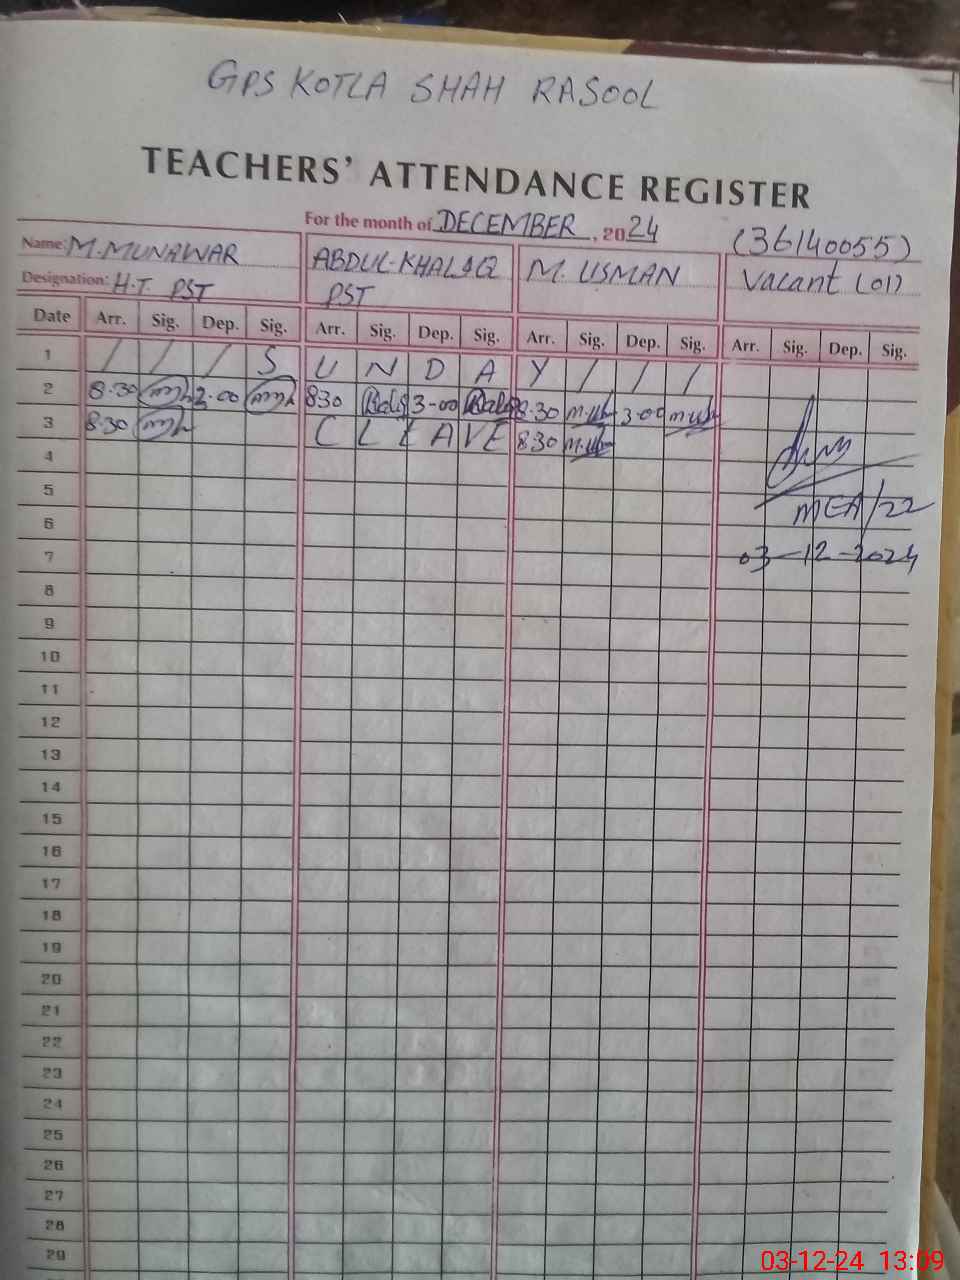 GPS KOTLA SHAH RASOOL
TEACHERS' ATTENDANCE REGISTER
For the month of DECEMBER, 2024
(36140055)
Name: M. MUNAWAR ABDUL-KHALIQ M. USMAN Vacant (01)
Designation: H.T. PST PST
Date Arr. Sig. Dep. Sig. Arr. Sig. Dep. Sig. Arr. Sig. Dep. Sig. Arr. Sig. Dep. Sig.
1 / / / S U N D A Y / / /
2 8.30 3.00 830 3-00 8.30 3.00
3 8.30 C L E A V E 8.30
4
5
MEA/22
6
7 03-12-2024
8
9
10
11
12
13
14
15
16
17
18
19
20
21
22
23
24
25
26
27
28
29
03-12-24 13:09